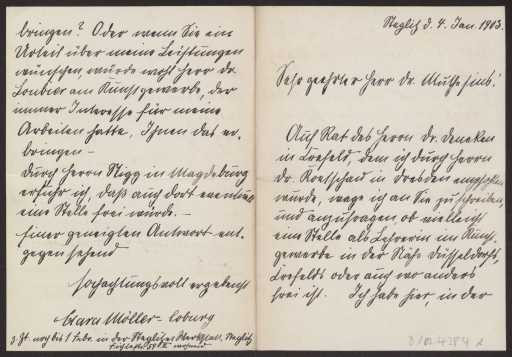 Steglitz d. 4. Jan 1903.
Sehr geehrter Herr Dr. Muthesius!
Auf Rat des Herrn Dr. Deneken
in Crefeld, dem ich durch Herrn
Dr. Koetschau in Dresden empfohlen
wurde, wage ich an Sie zu schreiben
und anzufragen, ob vielleicht
eine Stelle als Lehrerin im Kunst-
gewerbe in der Nähe Düsseldorfs,
Crefelds oder auch wo anders
frei ist. Ich habe hier, in der
bringen? Oder wenn Sie ein
Urteil über meine Leistungen
wünschen, würde wohl Herr Dr.
Loubier am Kunstgewerbe, der
immer Interesse für meine
Arbeiten hatte, Ihnen das er-
bringen.
Durch Herrn in Magdeburg
erfuhr ich, daß auch dort eventuell
eine Stelle frei würde. –
Einer geneigten Antwort ent-
gegen sehend
hochachtungsvoll ergebenst
Clara Möller-Coburg
z. Zt. noch bis 1 Febr. in der Steglitzer Werkstatt, Steglitz